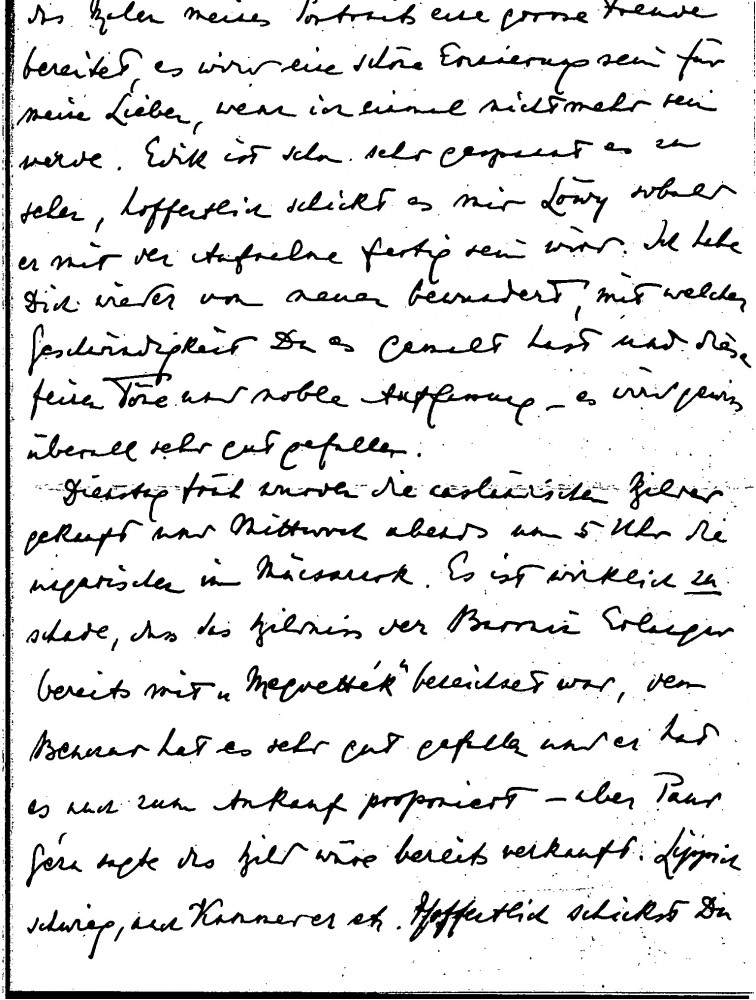 das Malen meines Portraits eine grosse Freude
bereitet, es wird eine schöne Erinnerung sein für
meine Lieben, wenn ich einmal nicht mehr sein
werde. Edik ist schon sehr gespannt es zu
sehen, hoffentlich schickt es mir Löwy sobald
er mit der Aufnahme fertig sein wird. Ich habe
Dich wieder von neuem bewundert, mit welcher
Geschwindigkeit Du es gemalt hast und diese
feinen Töne und noble Auffassung – es wird gewiss
überall sehr gut gefallen.
Dienstag früh wurden die ausländischen Bilder
gekauft und Mittwoch abends um 5 Uhr die
ungarischen im Mücsarnok. Es ist wirklich zu
schade, dass das Bildniss der Baronin Erlanger
bereits mit „Megvették" bezeichnet war, denn
Benczur hat es sehr gut gefallen und er hat
es auch zum Ankauf proponiert – aber Paur
Géza sagte das Bild wäre bereits verkauft. Lippich
schwieg, auch Kammerer etc. Hoffentlich schickst Du